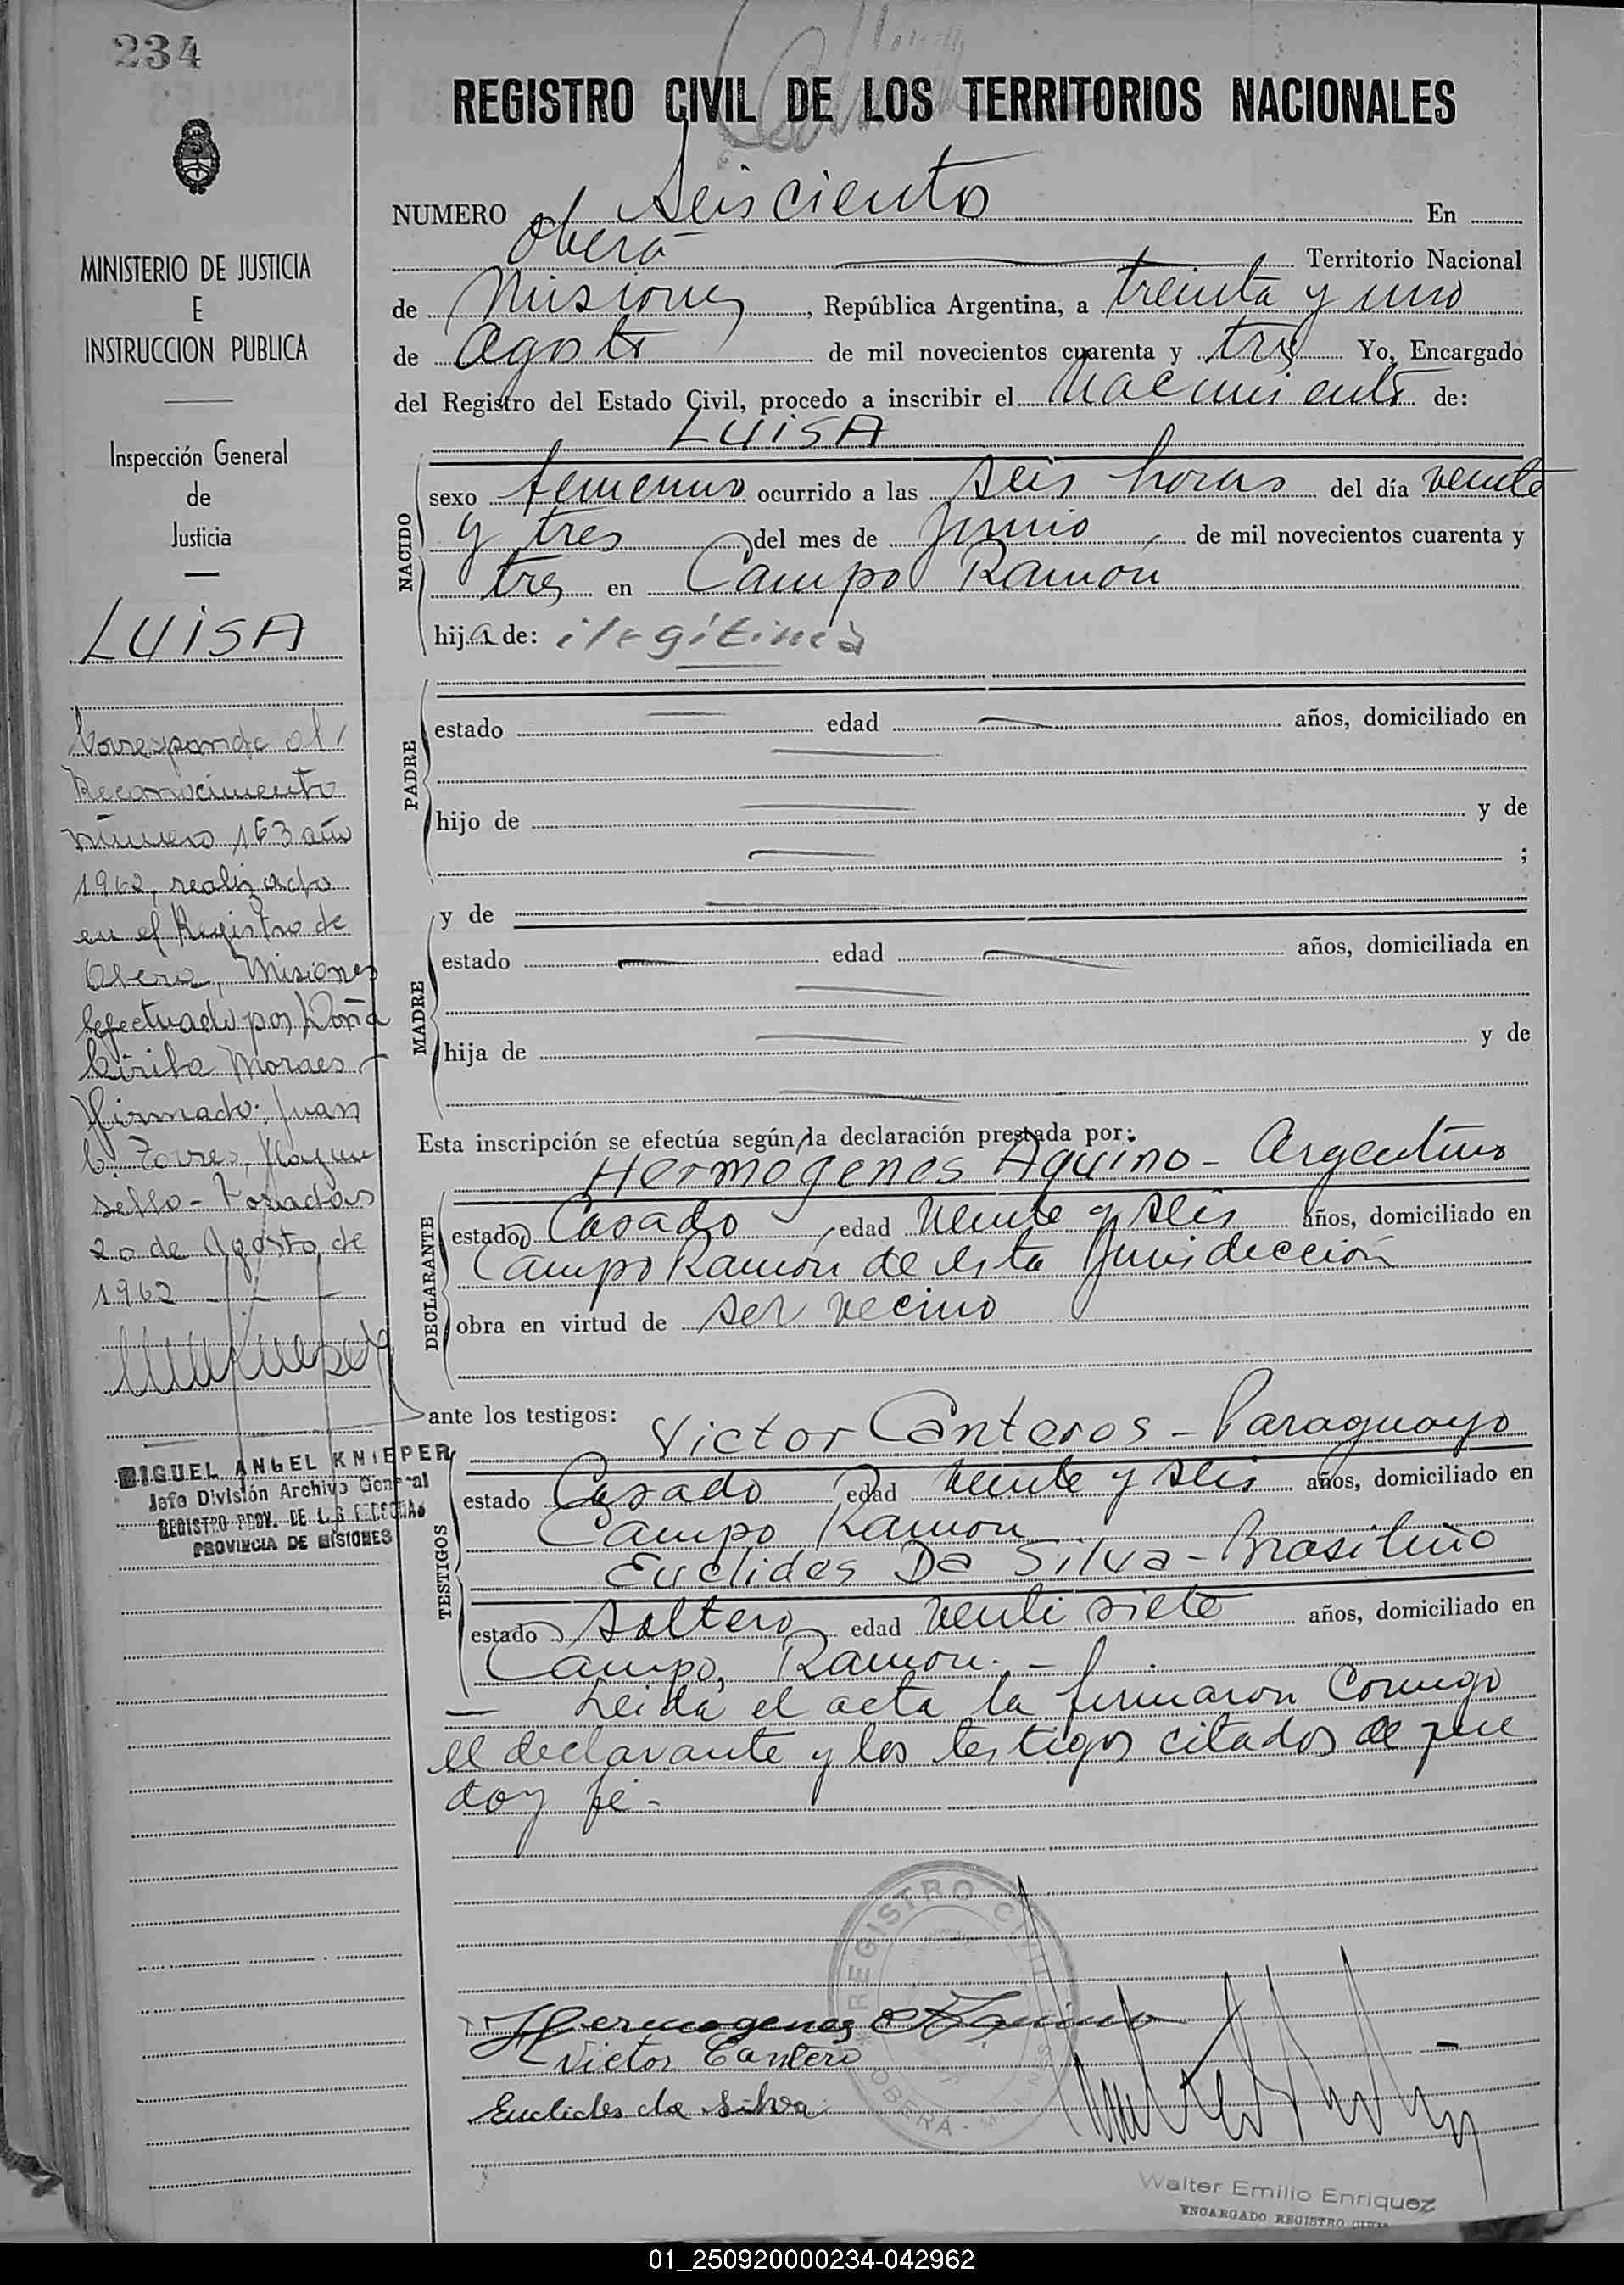 234
MINISTERIO DE JUSTICIA
E
INSTRUCCION PUBLICA
Inspección General
de
Justicia
LUiSA
Corresponde al
Reconocimiento
número 163 año
1962, realizado
en el Registro de
Obera, Misiones
efectuado por Doña
Cirila Moraes
firmado: Juan
C. Torres, Hay un
sello - Posadas
20 de Agosto de
1962
MIGUEL ANGEL KNIEPER
Jefe División Archivo General
REGISTRO PROV. DE LAS PERSONAS
PROVINCIA DE MISIONES
REGISTRO CIVIL DE LOS TERRITORIOS NACIONALES
NUMERO Seiscientos En
Oberá Territorio Nacional
de Misiones, República Argentina, a treinta y uno
de Agosto de mil novecientos cuarenta y tres Yo, Encargado
del Registro del Estado Civil, procedo a inscribir el Nacimiento de:
LUiSA
NACIDO
sexo femenino ocurrido a las seis horas del día veinte
y tres del mes de junio, de mil novecientos cuarenta y
tres en Campo Ramon
hija de: ilegítima
PADRE
estado edad años, domiciliado en
hijo de y de
;
MADRE
y de
estado edad años, domiciliada en
hija de y de
Esta inscripción se efectúa según la declaración prestada por:
Hermogenes Aquino - Argentino
DECLARANTE
estado Casado, edad veinte y seis años, domiciliado en
Campo Ramon de esta Jurisdicción
obra en virtud de ser vecino
ante los testigos:
Victor Canteros - Paraguayo
TESTIGOS
estado Casado edad veinte y seis años, domiciliado en
Campo Ramon
Euclides Da Silva - Brasileño
estado soltero edad veinti siete años, domiciliado en
Campo, Ramon. -
— Leida el acta la firmaron Conmigo
el declarante y los testigos citados de que
doy fe -
REGISTRO CIVIL
OBERA - MISIONES
Hermogenes Aquino
Victor Cantero
Euclides da Silva
Walter Emilio Enriquez
ENCARGADO REGISTRO CIVIL
01_250920000234-042962